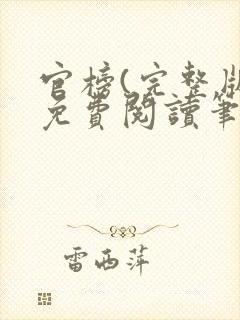 官榜(完整版
免費閱讀筆
雷西萍